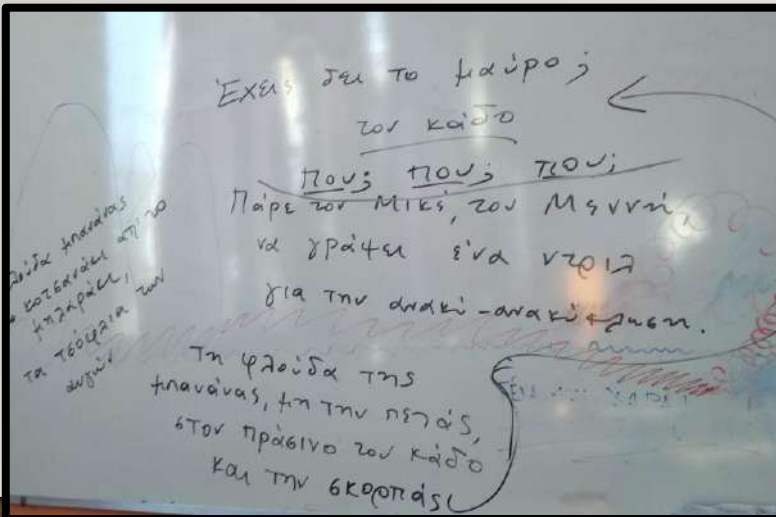 Έχεις δει το μαύρο;
τον κάδο
που; που; που;
Πάρε τον Μικέ, τον Μεννή,
να γράψει ένα ντριλ
για την ανακύ-ανακύκλωση.
Τη φλούδα της
μπανάνας, μη την πετάς,
στον πράσινο τον κάδο
και την σκορπάς
φλούδα μπανάνας
κοτσανάκι απ' το
μηλαράκι,
τα τσόφλια των
αυγών